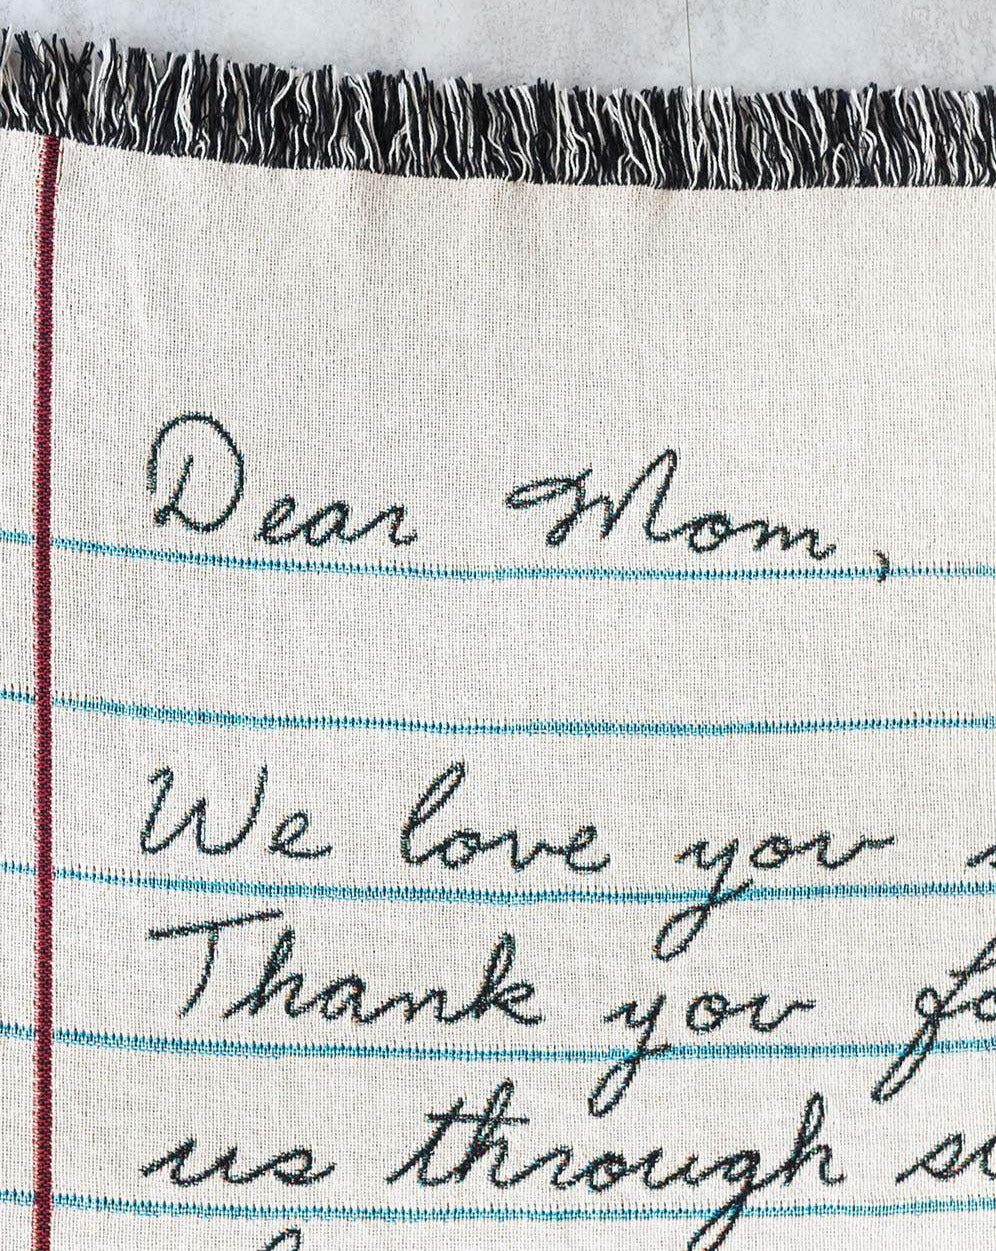 Dear Mom,
We love you
Thank you
us through